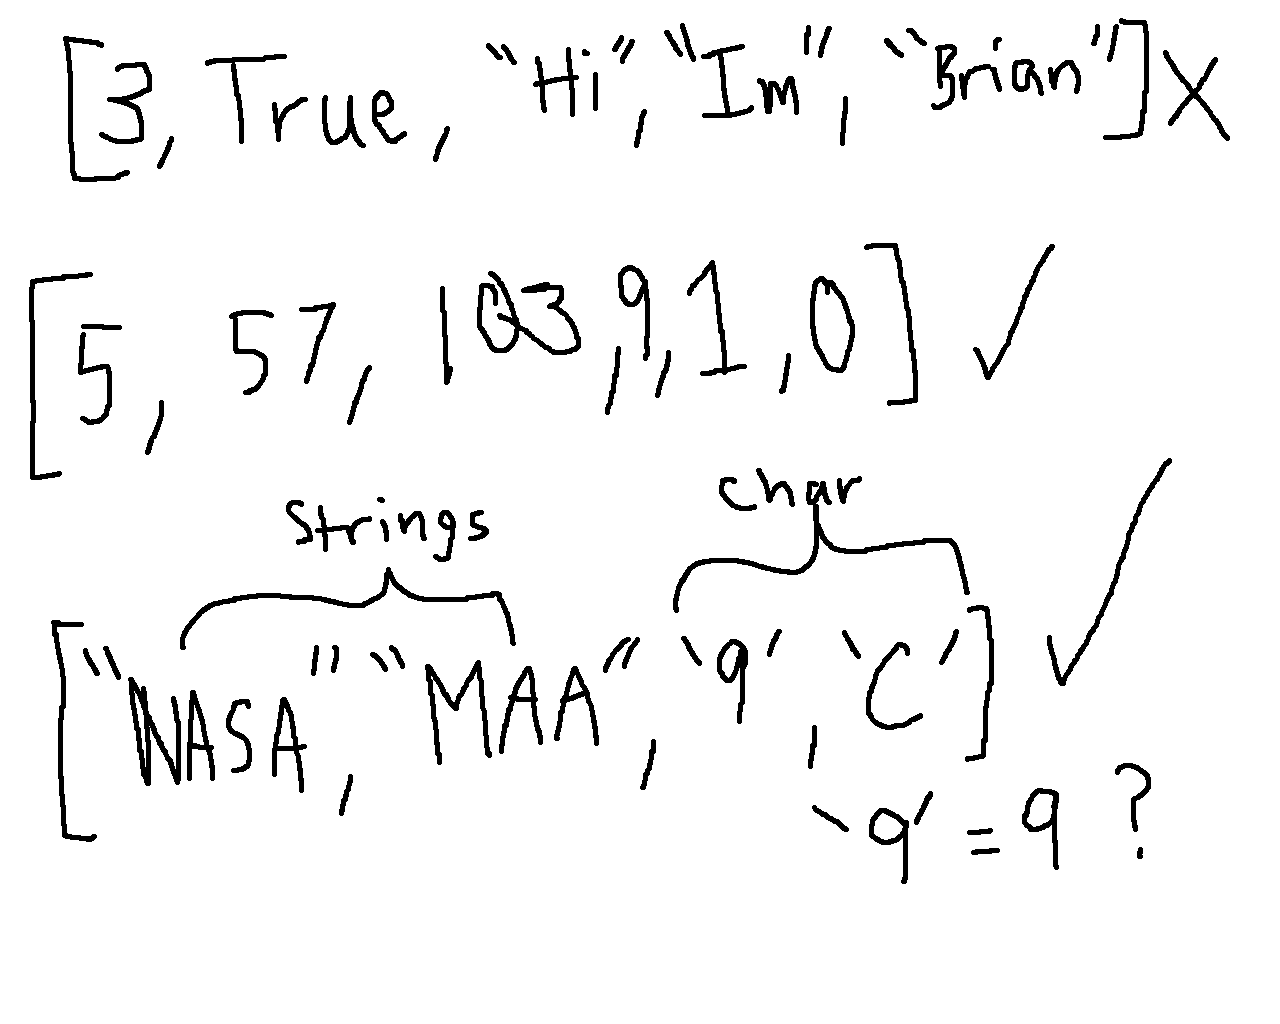 [3, True, "Hi", "Im", "Brian"] X
[5, 57, 103, 9, 1, 0] ✓
Strings char
["NASA", "MAA", '9', 'C'] ✓
'9' = 9 ?